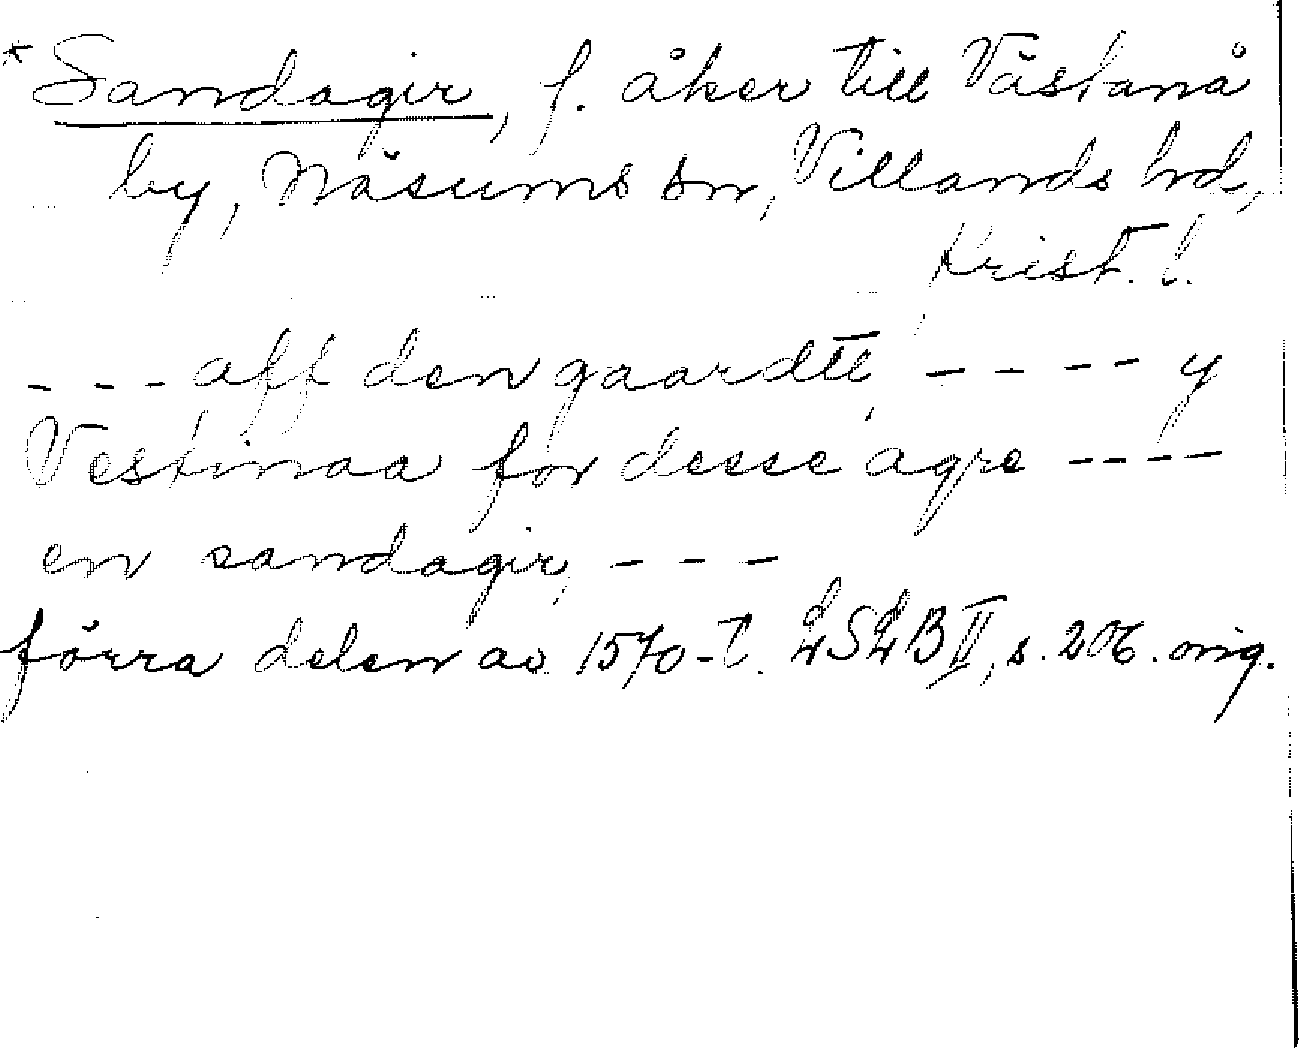 *Sandagir, f. åker till Västanå
by, Näsums sn, Villands hd,
Krist. l.
- - - aff den gaardtt - - - - y
Vestinaa for desse agre - - - -
en sandagir, - - -
förra delen av 1570-t. LSLB II, s. 206. orig.